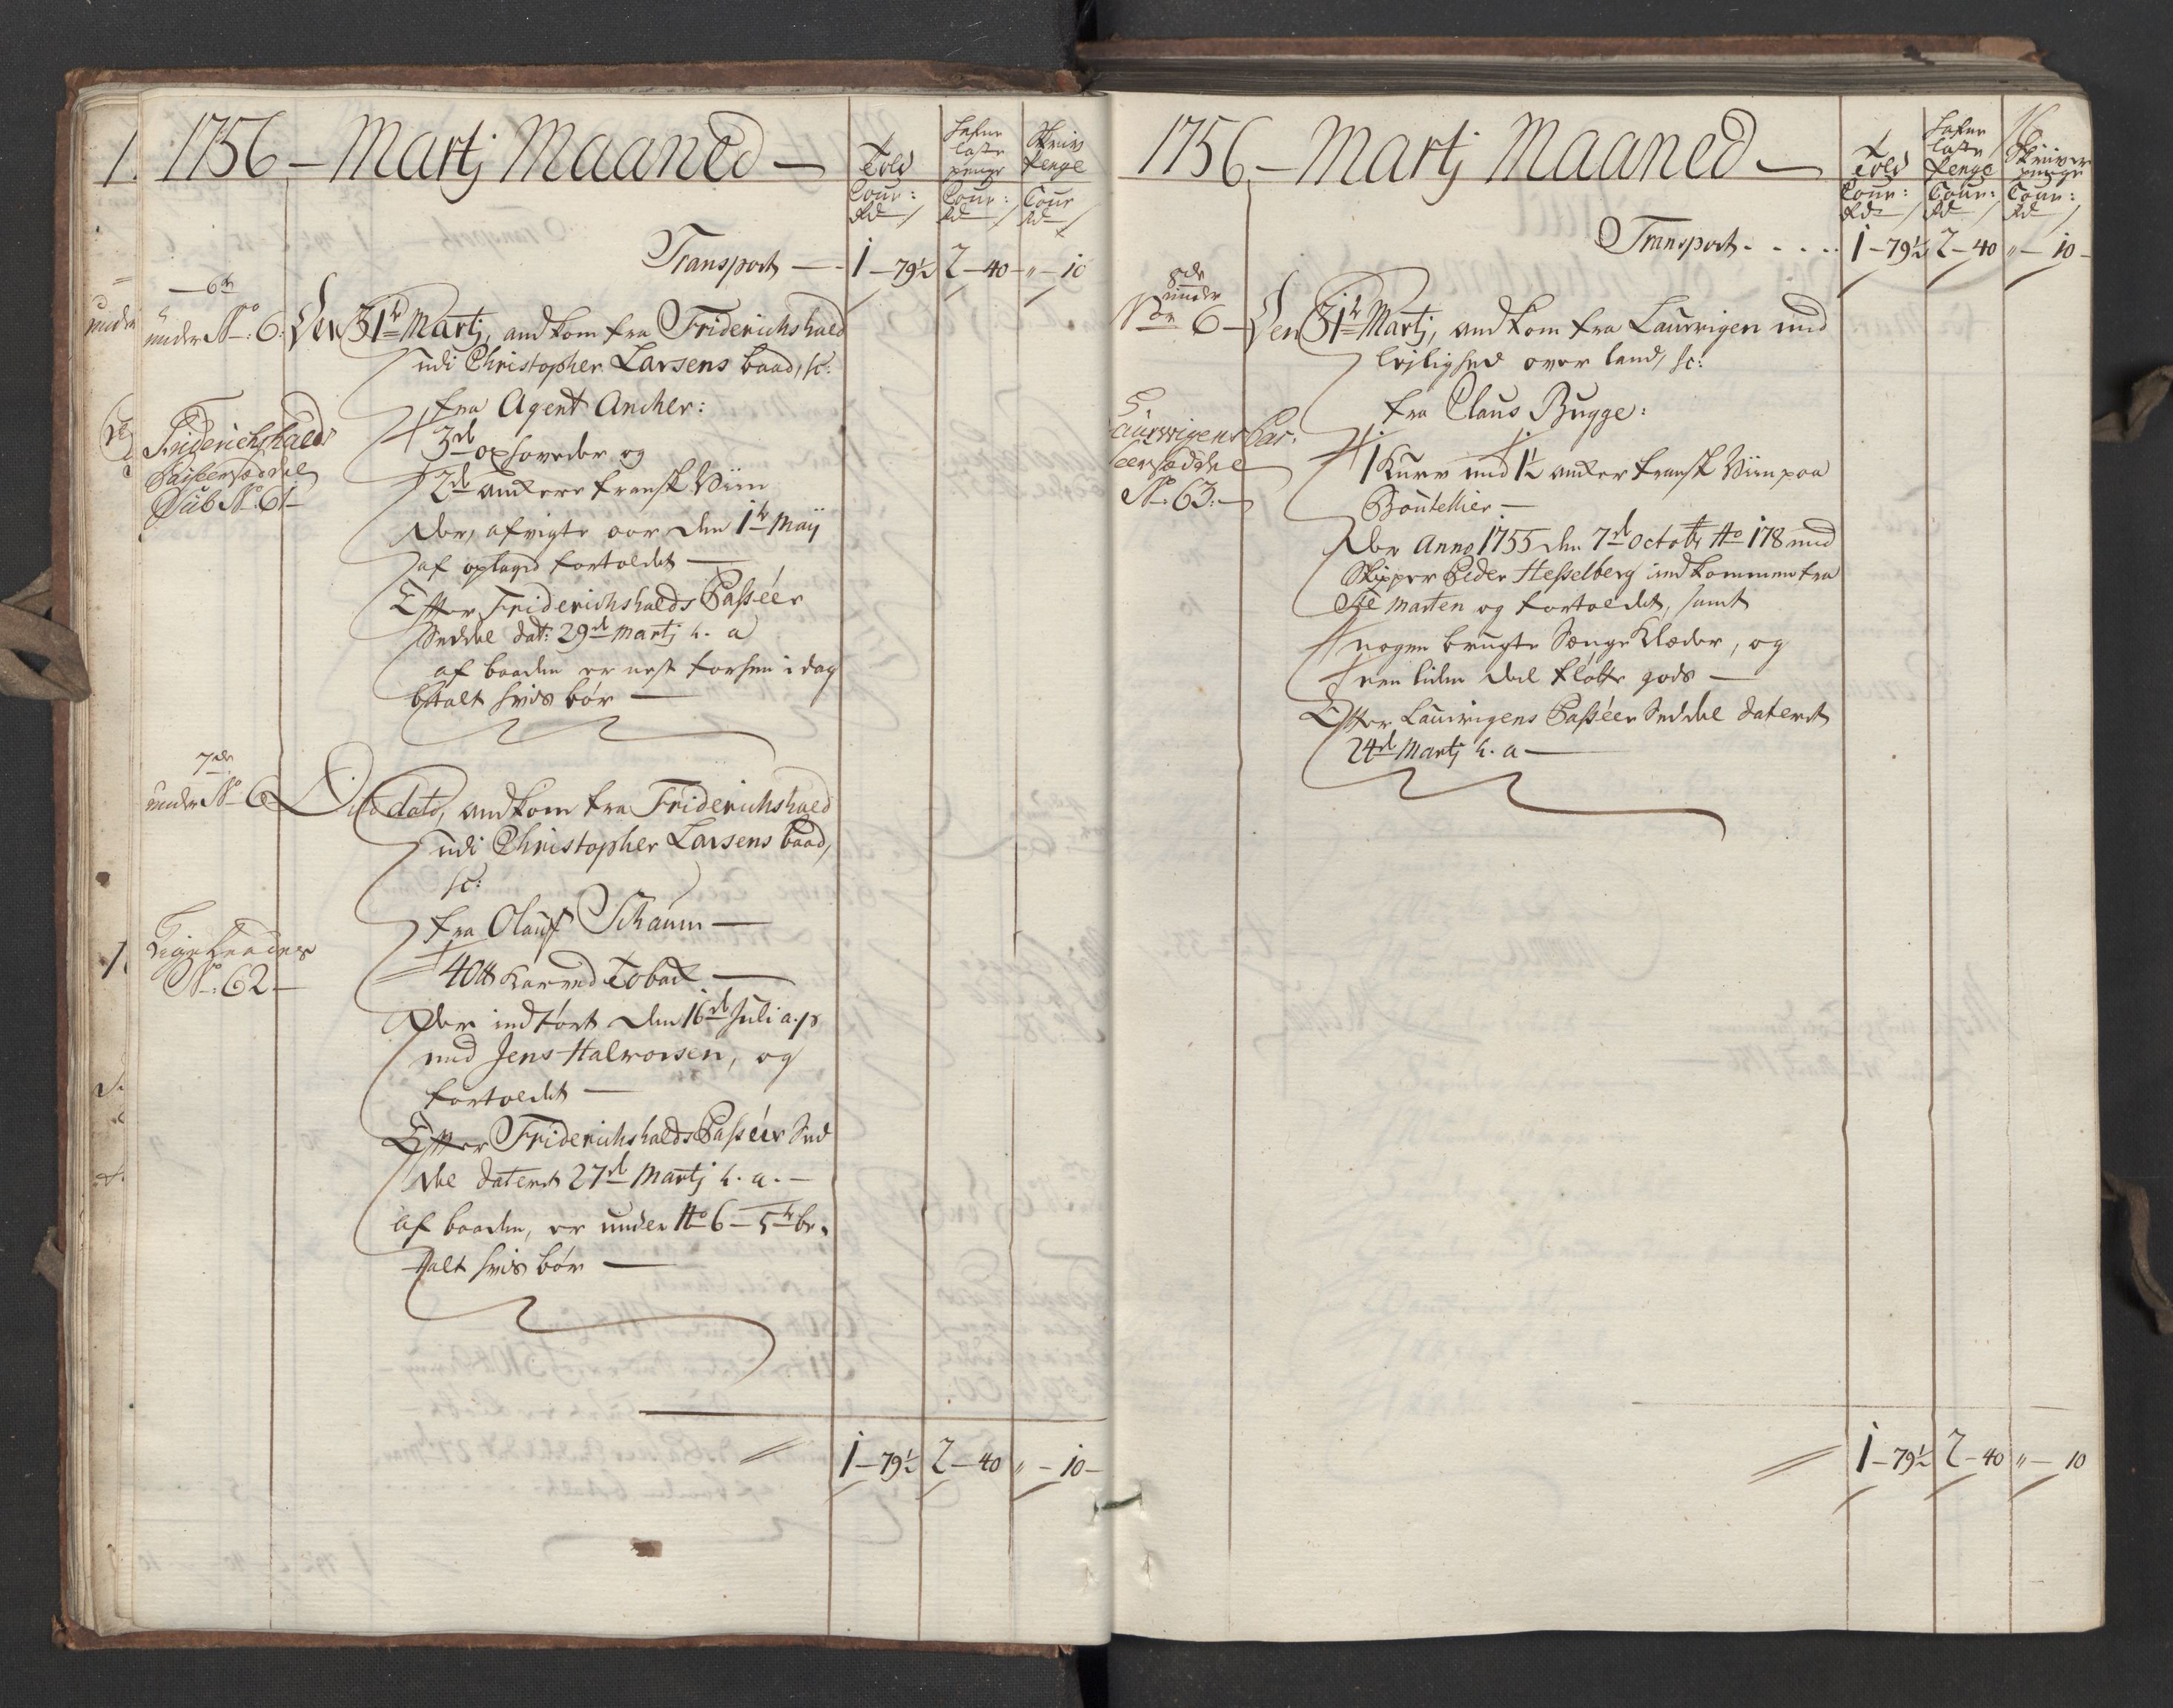 1756 – Martj Maaned –
Told
Cour:
Rd
Hafne
laste
penge
Cour:
Rd
Skriv
Penge
Cour
Rd
Transport — 1 – 79½ 2 – 40 – „ – 10
6te
under No: 6.
Den 31te Martj, andkom fra Friderichshald
udi Christopher Larsens baad, sc:
fra Agent Ancher:
Friderichshalds
Passeerseddel
Sub No: 61 –
3de oxhoveder og
2de anckere fransk Viin
der, afvigte aar den 1te Maij
af oplaget fortoldet —
Efter Friderichshalds Passéer
Seddel dat: 29de Martj h. a
af baaden er nest forhen i dag
betalt hvis bør —
7de
under No 6
Dito dato, andkom fra Friderichshald
udi Christopher Larsens baad,
sc:
fra Olauf Schaum —
No: 62 –
40 ℔ Karved Toback —
der indført den 16de Juli a. p
med Jens Halvorsen, og
fortoldet —
Efter Friderichshalds Passéer Sed
del dateret 27de Martj h. a. –
af baaden, er under No 6 – 5te be,
talt hvis bør —
1 – 79½ 2 – 40 „ – 10 –
1756 – Martj Maaned –
16
Told
Cour:
Rd
Hafne
laste
Penge
Cour:
Rd
Skriver
penge
Cour:
Rd
Transport . . . . 1 – 79½ 2 – 40 „ – 10 –
8de
under
No 6 –
Den 31te Martj, andkom fra Laurvigen med
leylighed over land, sc:
fra Claus Bugge:
Laurvigens Pas:
seerseddel
No: 63: –
1 Kurv med 1½ ancker fransk Viin paa
Bouteller –
der Anno 1755 den 7de Octobr No 178 med
Skipper Peder Hesselberg indkommen fra
St Marten og fortoldet, samt
nogen brugte Senge Klæder, og
een liden deel fløtte gods —
Efter Laurvigens Passéer Seddel dateret
24de Martj h. a —
1 – 79½ 2 – 40 „ – 10